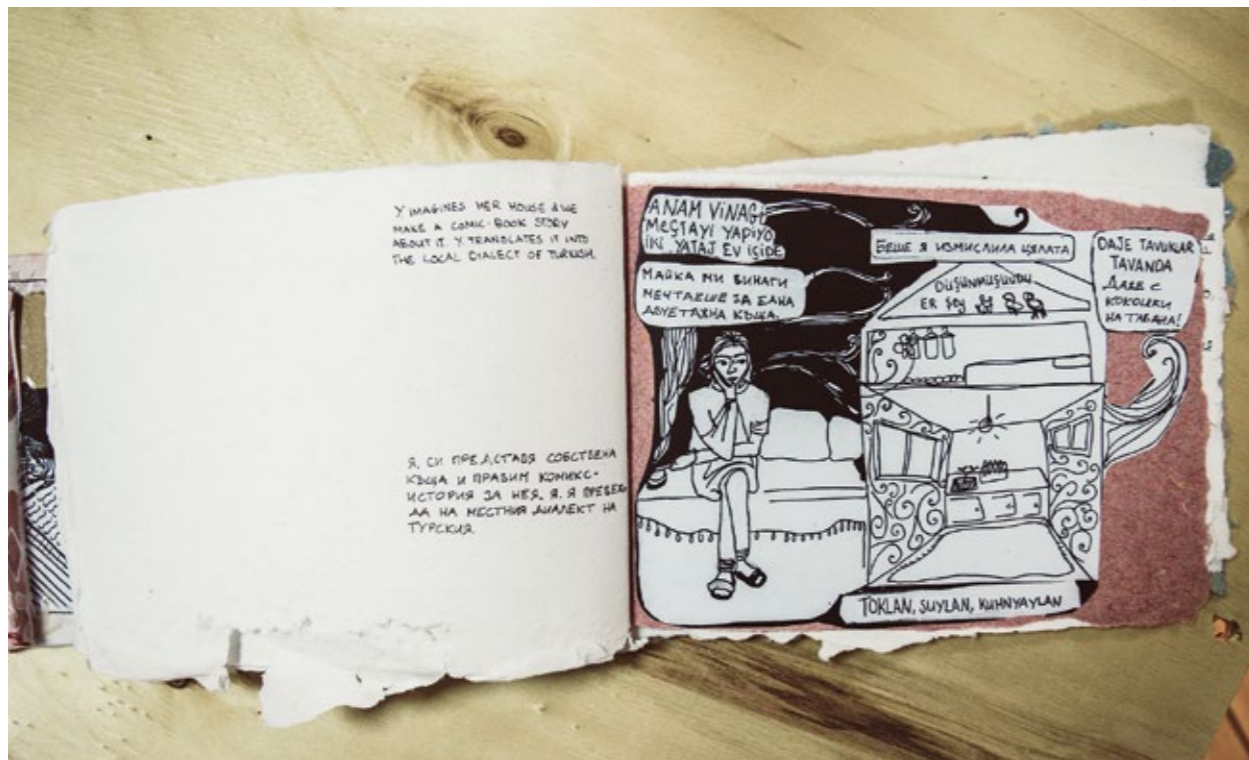 Y IMAGINES HER HOUSE & WE
MAKE A COMIC-BOOK STORY
ABOUT IT. Y TRANSLATES IT INTO
THE LOCAL DIALECT OF TURKISH.
Я. СИ ПРЕДСТАВЯ СОБСТВЕНА
КЪЩА И ПРАВИМ КОМИКС-
ИСТОРИЯ ЗА НЕЯ. Я. Я ПРЕВЕЖ
ДА НА МЕСТНИЯ ДИАЛЕКТ НА
ТУРСКИЯ.
ANAM VİNAGI
MEÇTAYI YAPIYO
İKİ YATAJ EV İÇİDE
МАЙКА МИ ВИНАГИ
МЕЧТАЕШЕ ЗА ЕДНА
ДВУЕТАЖНА КЪЩА.
БЕШЕ Я ИЗМИСЛИЛА ЦЯЛАТА
DÜŞÜNMÜŞÜUDU
ER ŞEY
DAJE TAVUKLAR
TAVANDA
ДАЖЕ С
КОКОШКИ
НА ТАВАНА!
TOKLAN, SUYLAN, KUHNYAYLAN